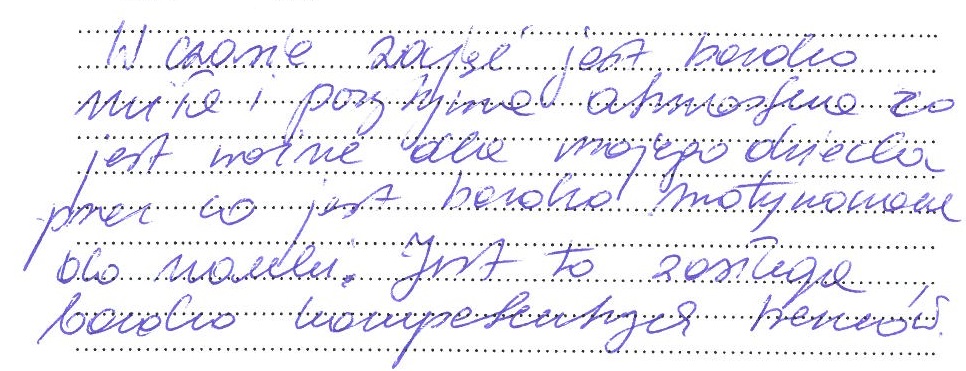 W czasie zajęć jest bardzo
miła i pozytywna atmosfera co
jest ważne dla mojego dziecka
przez co jest bardzo zmotywowane
do nauki. Jest to zasługa
bardzo kompetentnych trenerów.